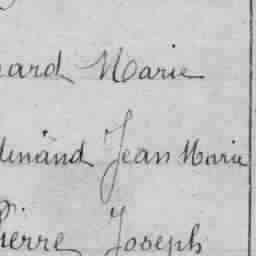 ard Marie
dinand Jean Marie
Pierre Joseph